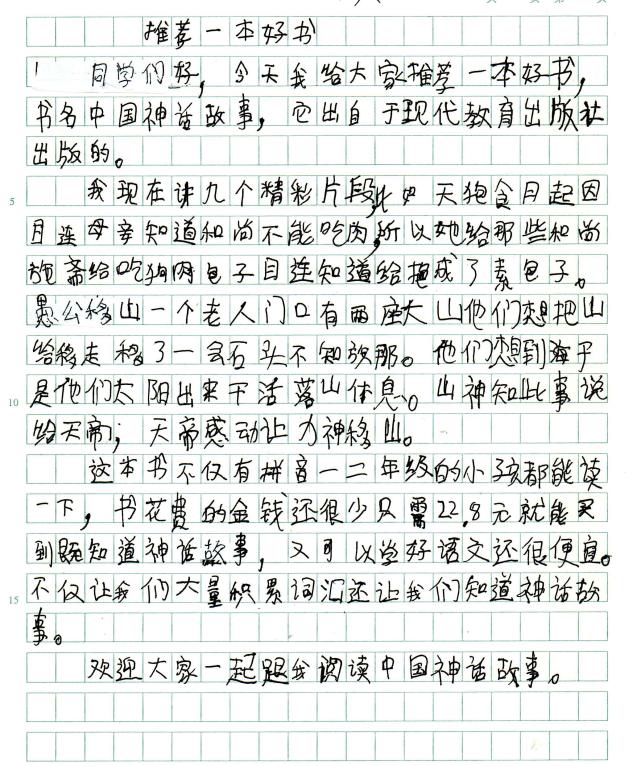 推荐一本好书
同学们好，今天我给大家推荐一本好书，
书名中国神话故事，它出自于现代教育出版社
出版的。
5 我现在讲几个精彩片段，比如天狗食月起因
目连母亲知道和尚不能吃肉，所以她给那些和尚
施斋给吃狗肉包子目连知道给换成了素包子。
愚公移山一个老人门口有两座大山他们想把山
给移走移了一会石头不知放那。他们想到海于
10 是他们太阳出来干活落山休息。山神知此事说
给天帝，天帝感动让力神移山。
这本书不仅有拼音一二年级的小孩都能读
一下，书花费的金钱还很少只需22.8元就能买
到既知道神话故事，又可以学好语文还很便宜。
15 不仅让我们大量积累词汇还让我们知道神话故
事。
欢迎大家一起跟我阅读中国神话故事。